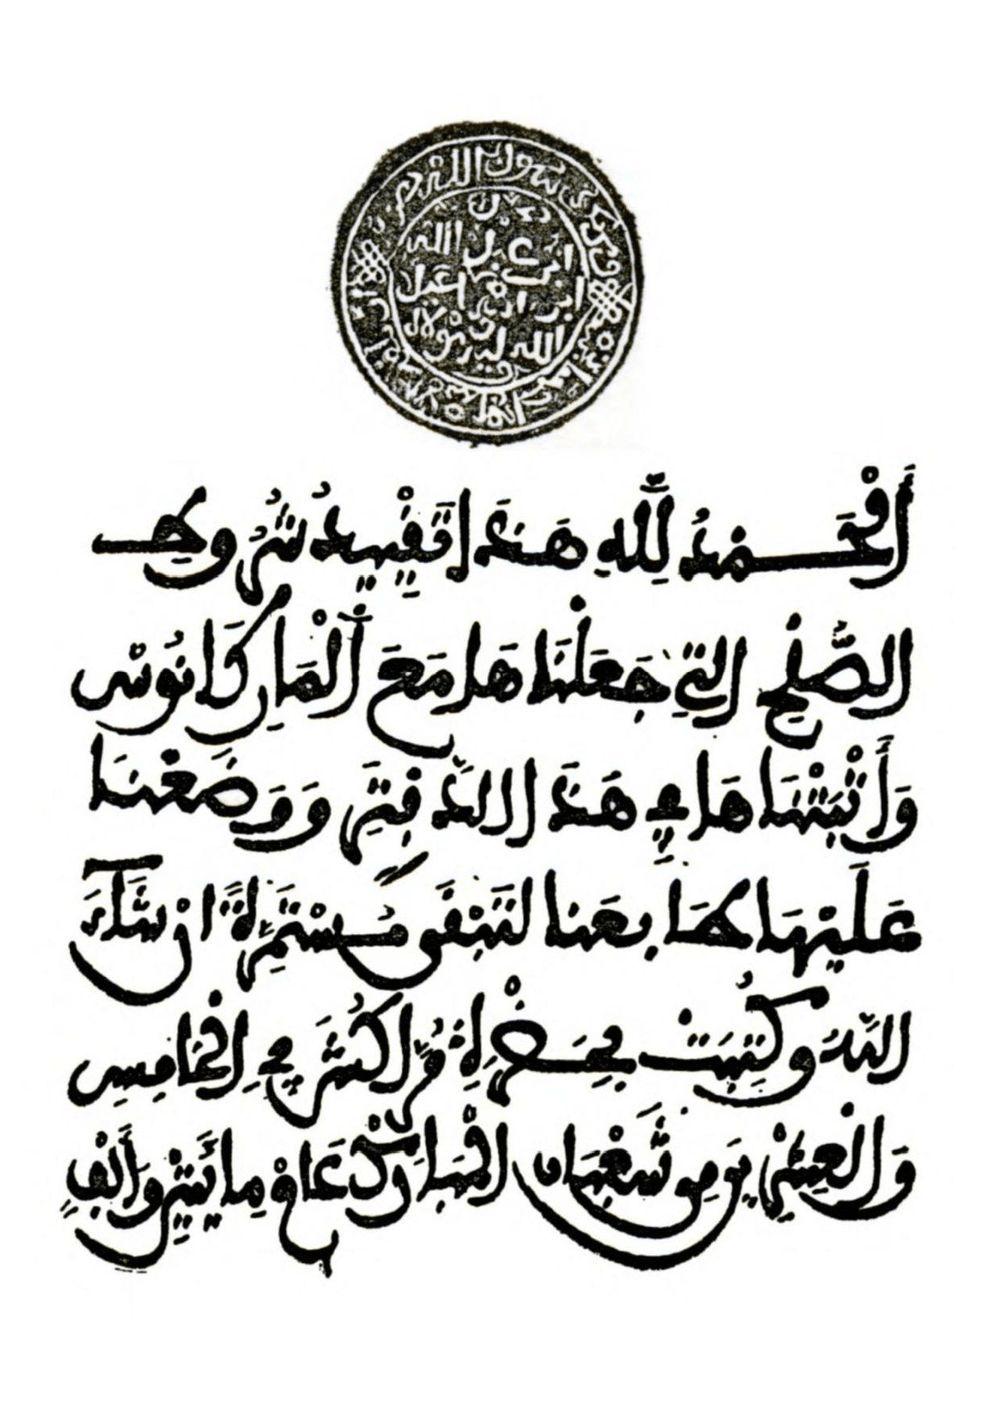 ابن عبد الله
ابن اسماعيل
الله وليه ومولاه
أَلْحَمْدُ لِلَّهِ هَذَا تَقْيِيدُ شُرُوطِ
الصُّلْحِ التِي جَعَلْنَاهَا مَعَ أَلْمَارِكَانُوسْ
وَأَثْبَتْنَاهَا فِي هَذَا الدَّفْتَرِ وَوَضَعْنَا
عَلَيْهَا طَابِعَنَا لتَبْقَى مُسْتَمِرَّةً انْ شَآءَ
اللَّهُ وكُتِبَتْ بِحَضْرَةِ مُرَّاكُشَ فِي الْخَامِسِ
وَالْعِشْرِينْ يَوم شَعْبَان الْمُبَارَكْ عَامْ مِائَتَيْنِ وَأَلْفٍ